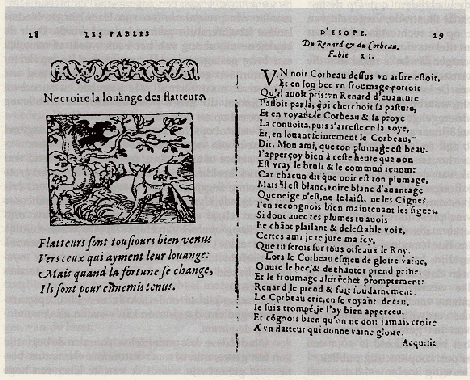 28 LES FABLES
Ne croire la louange des flatteurs
Flatteurs sont tousiours bien venus
Vers ceux qui ayment leur louange:
Mais quand la fortune se change,
Ils sont pour ennemis tenus.
D'ESOPE. 29
Du Renard & du Corbeau.
Fable XI.
VN noir Corbeau dessus un arbre estoit,
Et en son bec un fourmage portoit
Qu'il auoit pris: un Renard d'auanture
Passoit par là, qui cherchoit sa pasture,
Et en voyant le Corbeau & sa proye
La conuoita, puis s'arreste en la voye,
Et, en louant le Corbeau,
Dit, Mon ami, que ton plumage est beau.
I'apperçoy bien à ceste heure que non
Est vray le bruit & le commun renom:
Car chacun dit que noir est ton plumage,
Mais il est blanc, voire blanc d'auantage
Que neige n'est, ne laict, ne les Cignes
I'en recongnois bien maintenant les signes,
Si donc auec tes plumes tu auois
Et chant plaisant & delectable voix,
Certes ami ie te iure ma foy,
Que tu serois sur tous oiseaux le Roy.
Lors le Corbeau esmeu de gloire vaine,
Ouure le bec, & de chanter prend peine
Et le fourmage alors chet promptement:
Renard le prend & fuit soudainement.
Le Corbeau crie, en se voyant deceu,
Ie suis trompé, ie l'ay bien apperceu.
Et cognois bien qu'on ne doit iamais croire
A un flatteur qui donne vaine gloire.
Acquisit